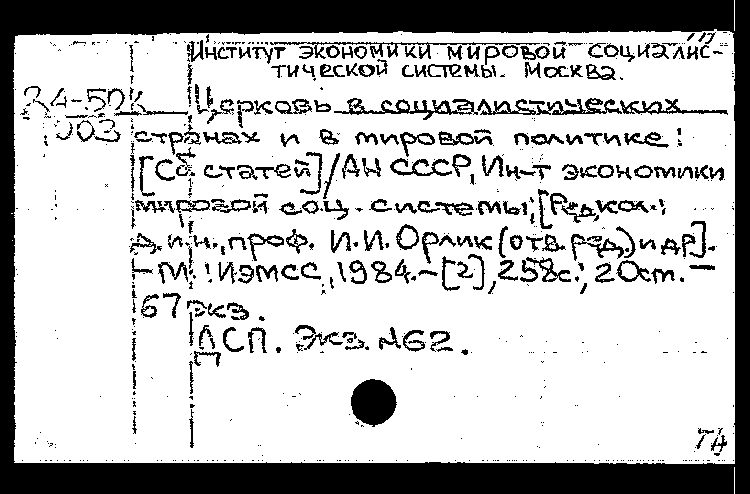 Институт экономики мировой социалис-
тической системы. Москва.
84-50к Церковь в социалистических
903 странах и в мировой политике:
[Сб. статей]/АН СССР, Ин-т экономики
мировой соц. системы; [Редкол.:
д.и.н., проф. И.И. Орлик (отв. ред.) и др].
- М.: ИЭМСС, 1984. - [2], 258с.; 20см. -
67 экз.
ДСП. Экз. №62.